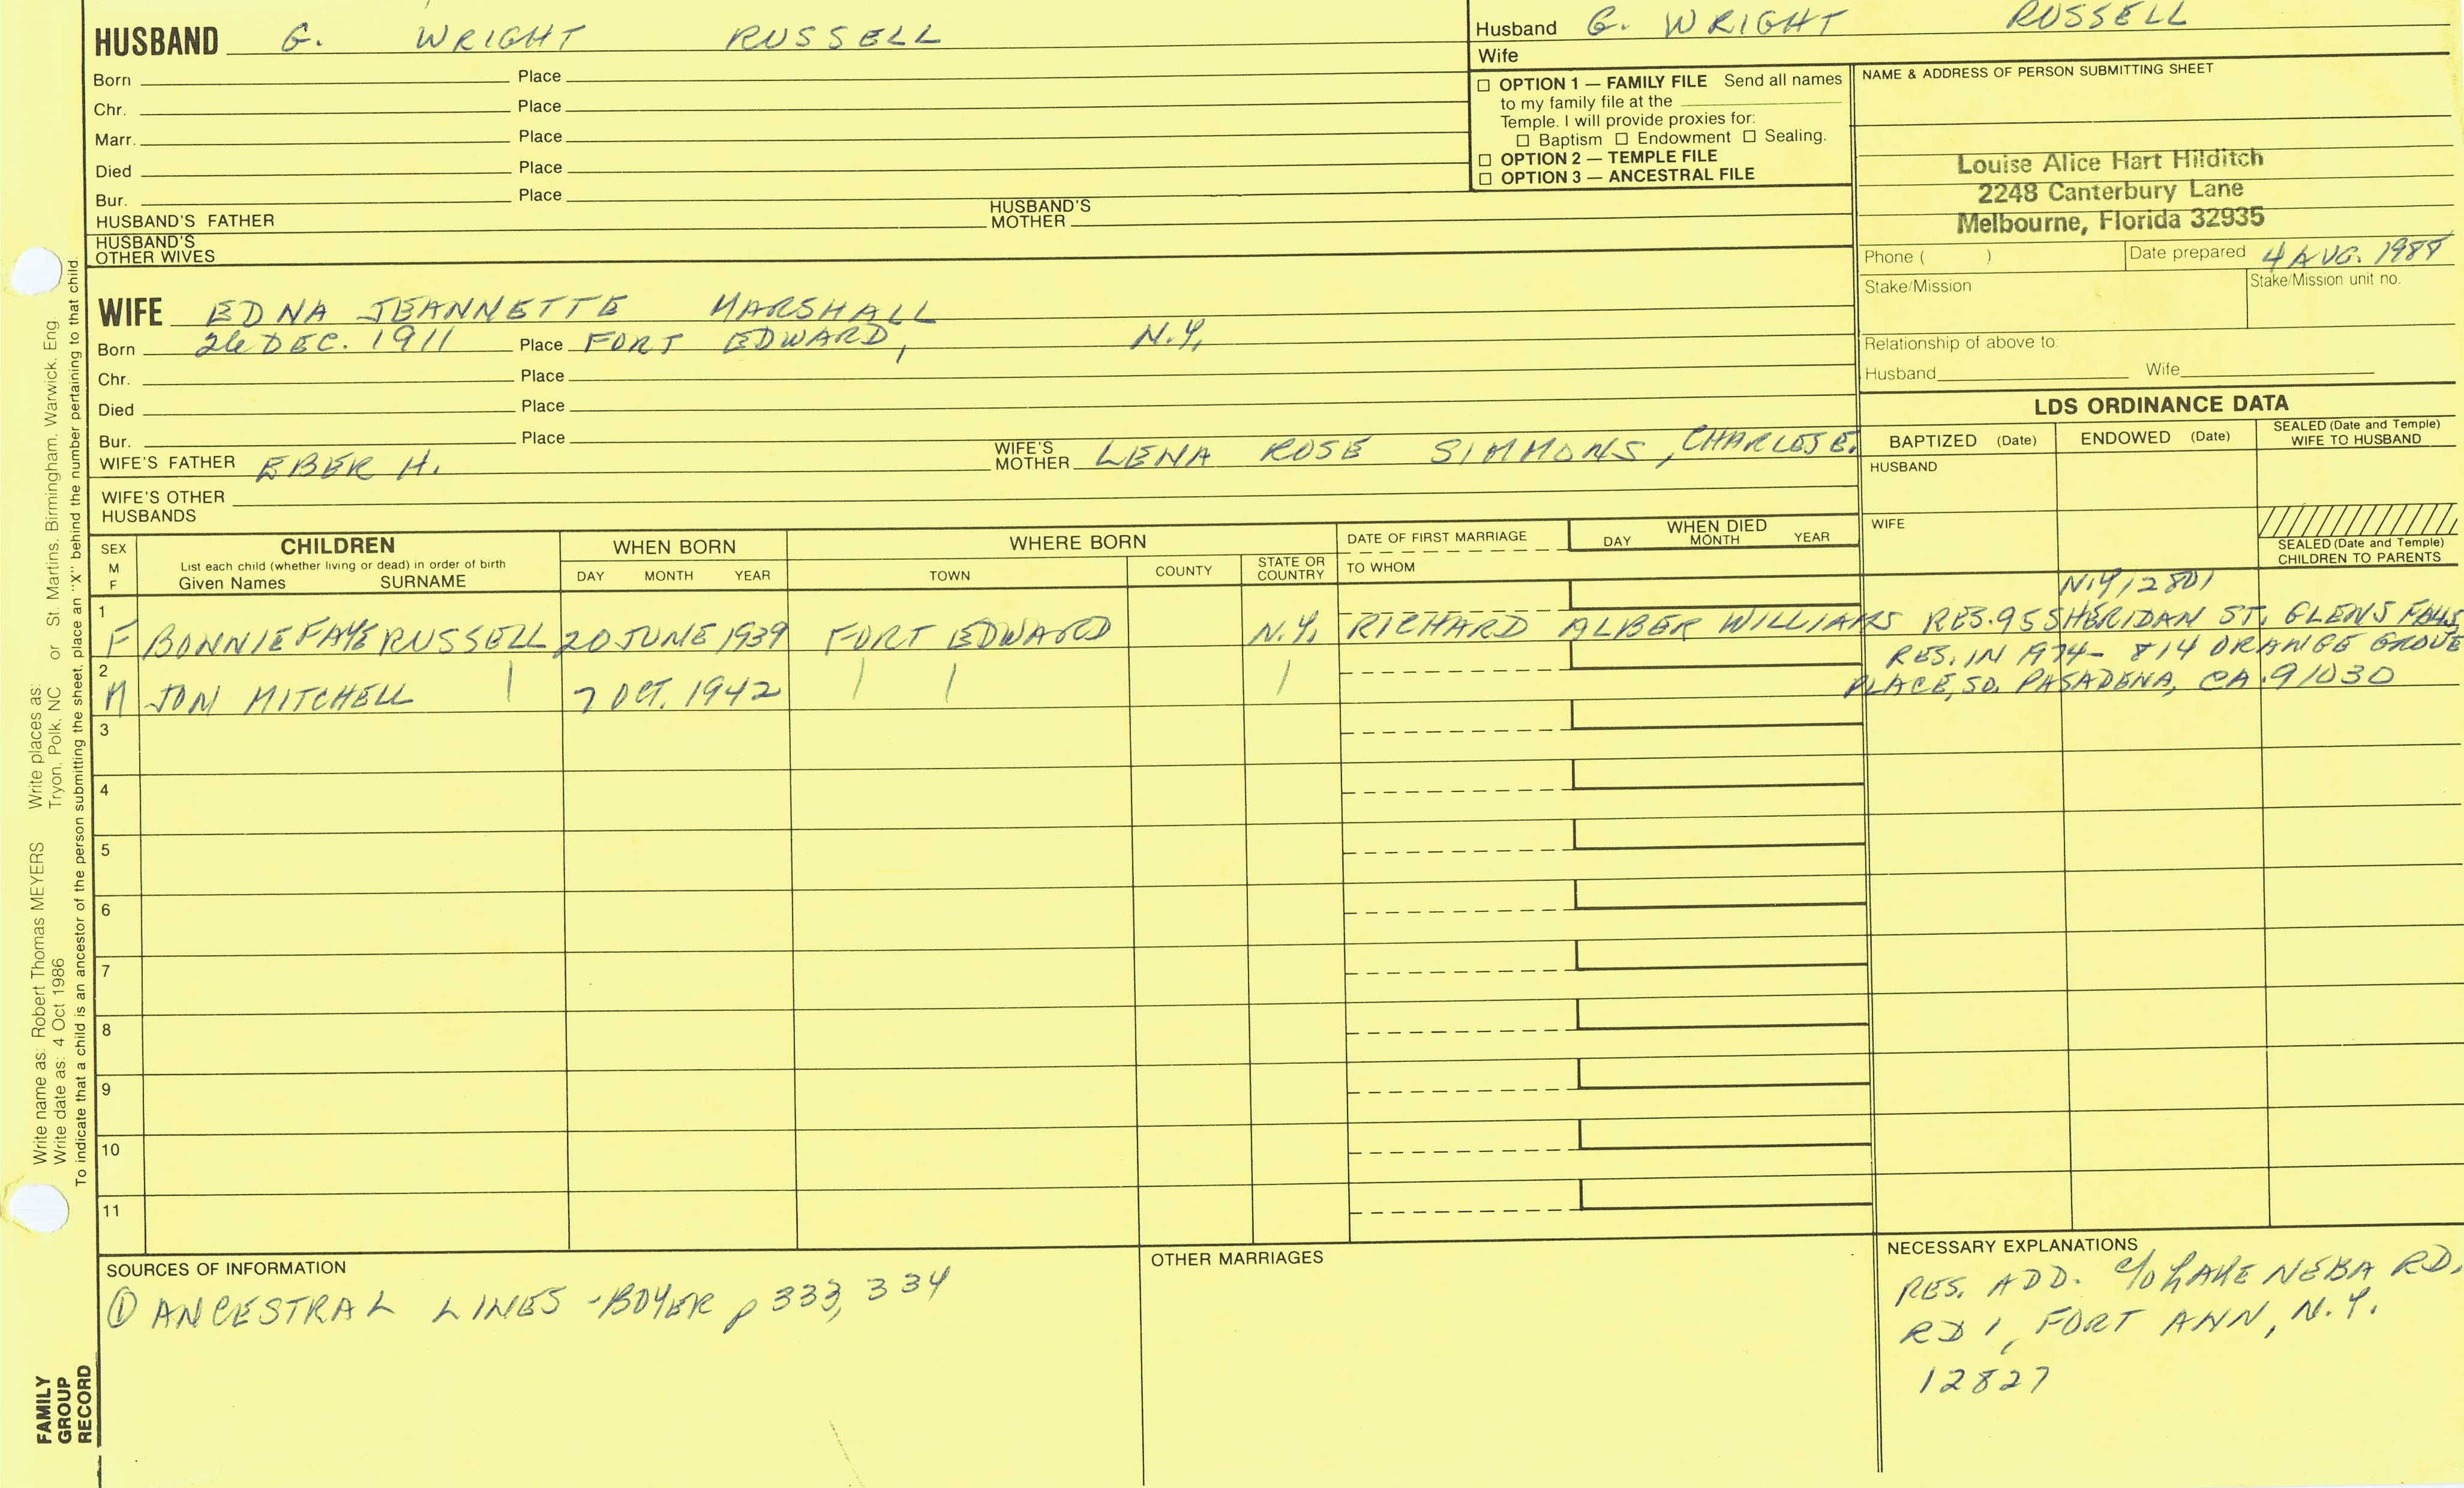 HUSBAND G. WRIGHT RUSSELL
Born Place
Chr. Place
Marr. Place
Died Place
Bur. Place
HUSBAND'S FATHER HUSBAND'S MOTHER
HUSBAND'S OTHER WIVES
Husband G. WRIGHT RUSSELL
Wife
OPTION 1 — FAMILY FILE Send all names
to my family file at the
Temple. I will provide proxies for:
Baptism Endowment Sealing.
OPTION 2 — TEMPLE FILE
OPTION 3 — ANCESTRAL FILE
NAME & ADDRESS OF PERSON SUBMITTING SHEET
Louise Alice Hart Hilditch
2248 Canterbury Lane
Melbourne, Florida 32935
Phone ( ) Date prepared 4 AUG.
Stake/Mission Stake/Mission unit no.
Relationship of above to:
Husband Wife
WIFE EDNA JEANNETTE MARSHALL
Born 26 DEC. 1911 Place FORT EDWARD, N.Y.
Chr. Place
Died Place
Bur. Place
WIFE'S FATHER EBER H. WIFE'S MOTHER LENA ROSE SIMMONS, CHARLES E.
WIFE'S OTHER HUSBANDS
LDS ORDINANCE DATA
BAPTIZED (Date) ENDOWED (Date) SEALED (Date and Temple) WIFE TO HUSBAND
HUSBAND
WIFE
SEALED (Date and Temple) CHILDREN TO PARENTS
SEX M F CHILDREN WHEN BORN WHERE BORN DATE OF FIRST MARRIAGE WHEN DIED
List each child (whether living or dead) in order of birth
Given Names SURNAME DAY MONTH YEAR TOWN COUNTY STATE OR COUNTRY TO WHOM DAY MONTH YEAR
N.Y. 12801
1 F BONNIE FAYE RUSSELL 20 JUNE 1939 FORT EDWARD N.Y. RICHARD ALBER WILLIAMS RES. 95 SHERIDAN ST. GLENS FALLS,
RES. IN 1974- 814 ORANGE GROVE
2 M JON MITCHELL | 7 OCT. 1942 | | | PLACE, SO. PASADENA, CA. 91030
3
4
5
6
7
8
9
10
11
SOURCES OF INFORMATION
① ANCESTRAL LINES - BOYER p 333, 334
OTHER MARRIAGES
NECESSARY EXPLANATIONS
RES. ADD. c/o LAKE NEBA RD,
RD 1, FORT ANN, N.Y.
12827
Write name as: Robert Thomas MEYERS Write places as:
Write date as: 4 Oct 1986 Tryon, Polk, NC or St. Martins, Birmingham, Warwick, Eng
To indicate that a child is an ancestor of the person submitting the sheet, place an "X" behind the number pertaining to that child.
FAMILY
GROUP
RECORD